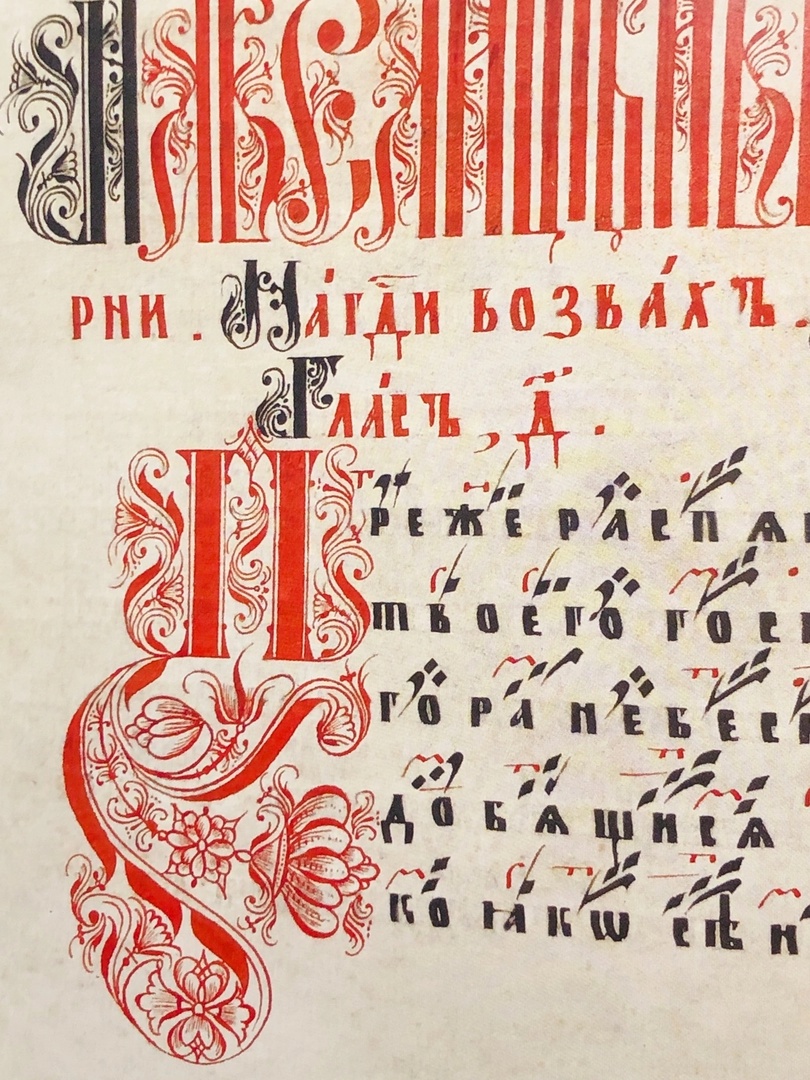 рни . На́ гд҃и воззва́хъ .
Гла́съ , д҃ .
Преже распѧ
твоего гос
гора небес
добѧщисѧ
ко ꙗкѡ сѣн